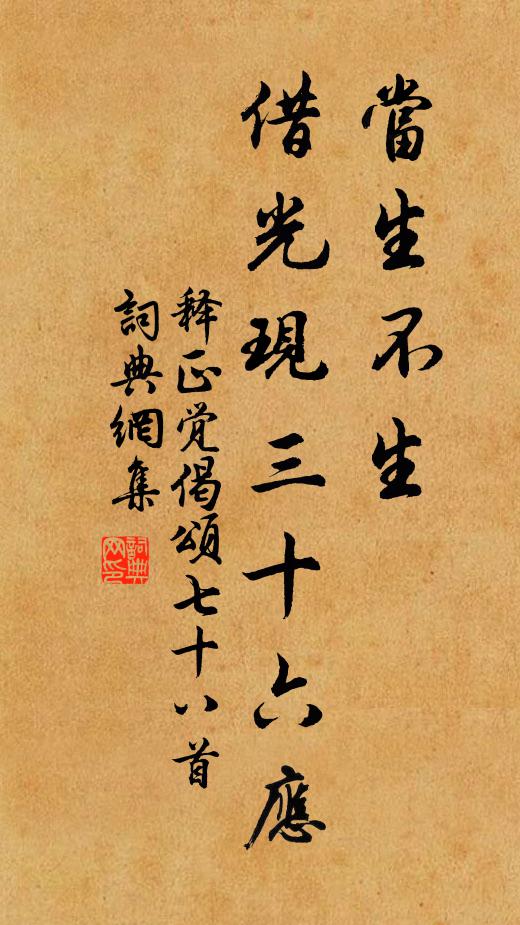 當生不生
借光現三十六應
释正觉偈頌七十八首
詞典網集
詞典網印